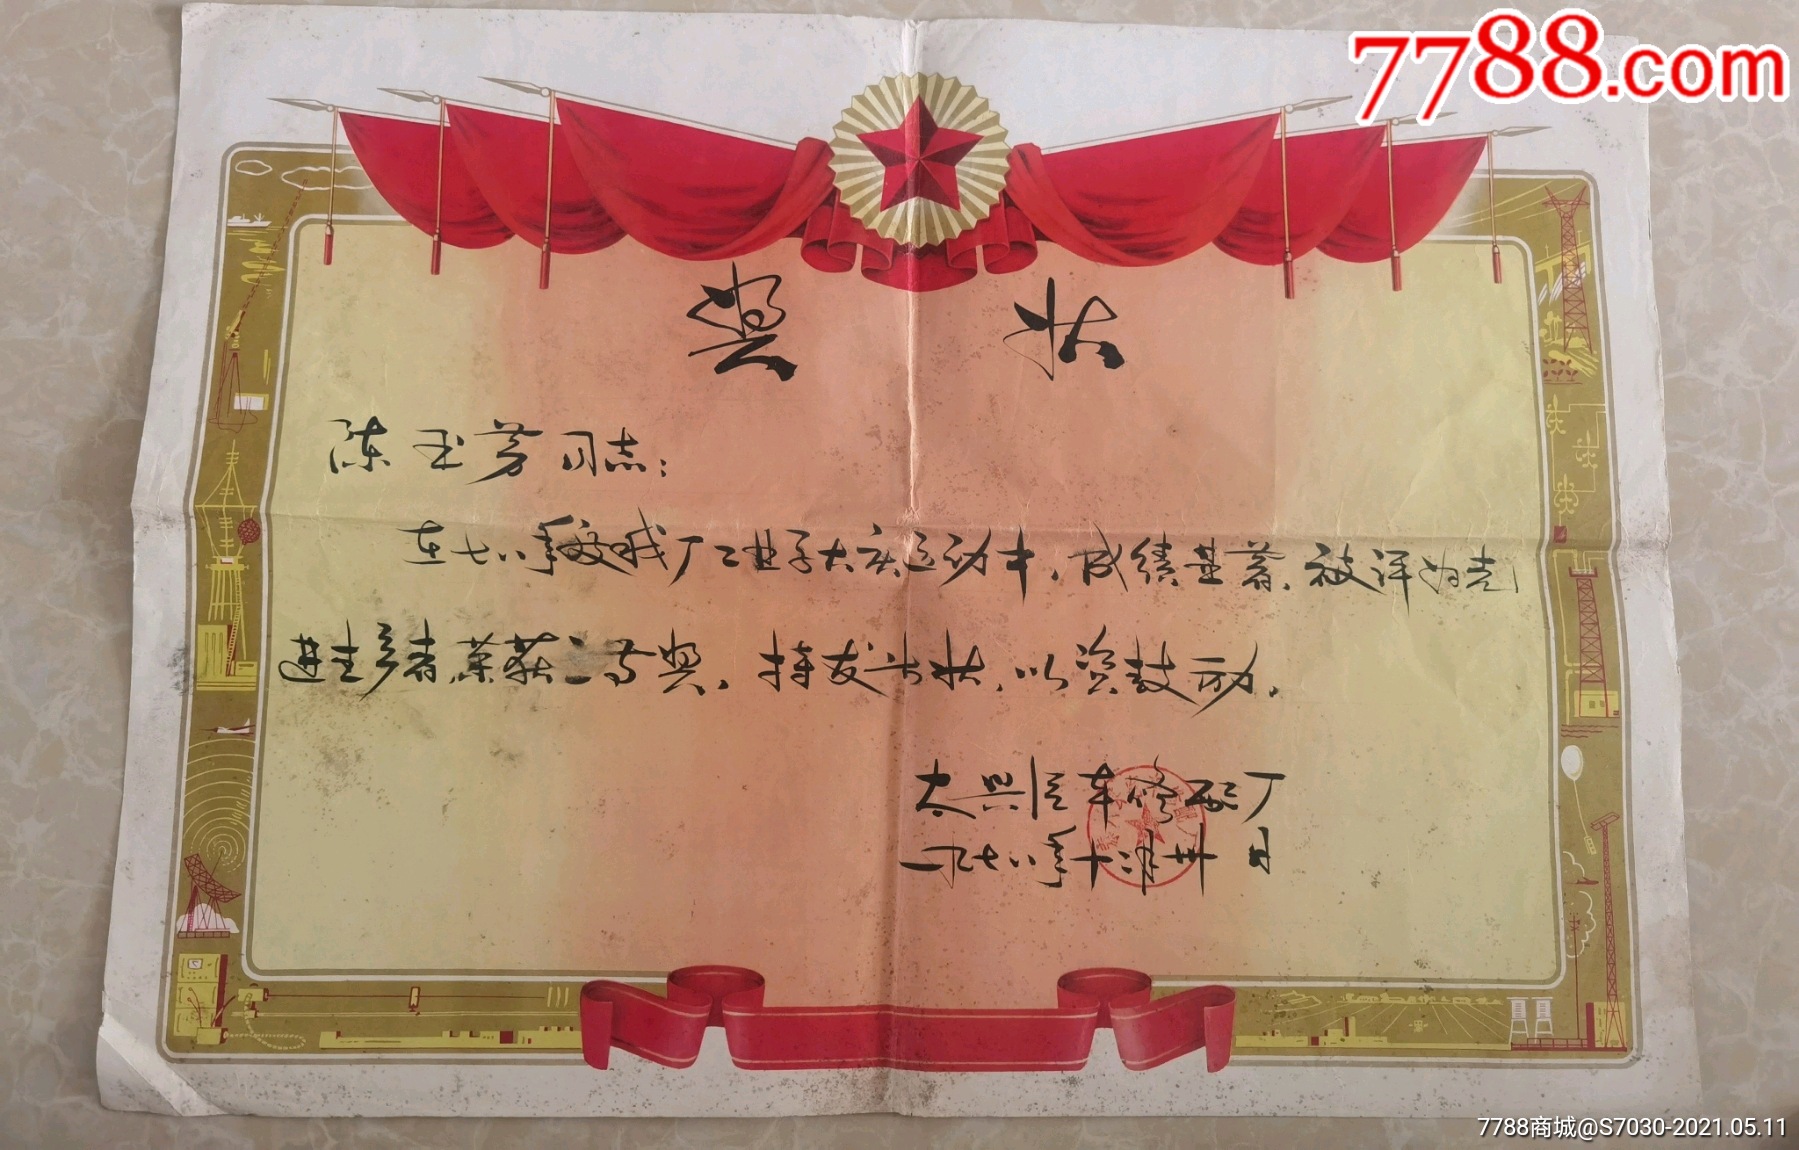 7788.com
奖状
陈玉芳同志：
在七八年度我厂工业学大庆运动中，成绩显著，被评为先
进生产者，荣获三等奖，特发此状，以资鼓励。
大兴区车修配厂
一九七八年十二月卅日
7788商城@S7030-2021.05.11